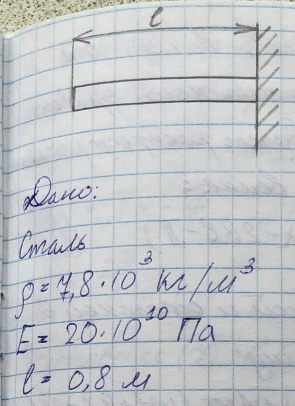 l
Дано:
Сталь
ρ = 7,8·10³ кг/м³
E = 20·10¹⁰ Па
l = 0,8 м